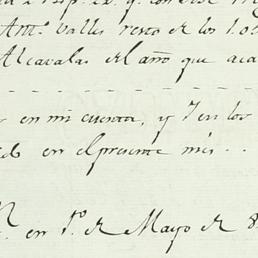 Antto. Valles resto de los 1.0
Alcavalas del año que aca
en mi cuenta, y 7 en los
en el presente mes..
en 1º de Mayo de 8